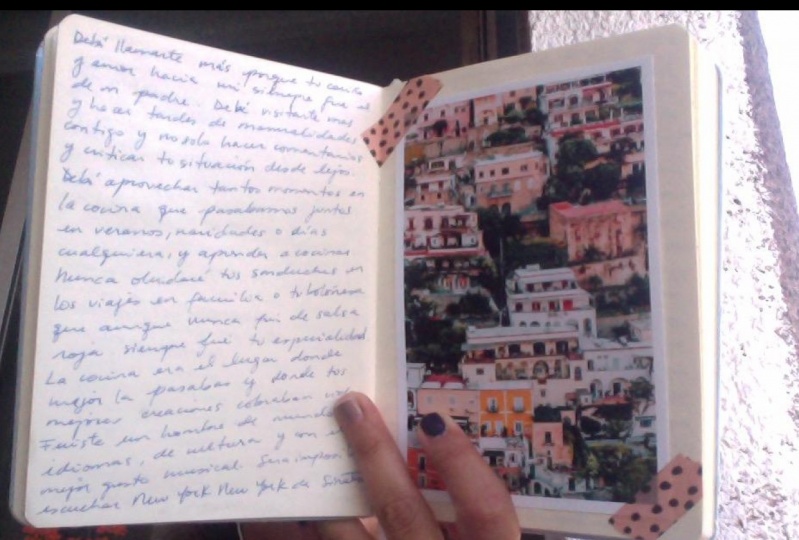 Debí llamarte más porque tu cariño
y amor hacia mi siempre fue el
de un padre. Debí visitarte mas
y hacer tardes de manualidades
contigo y no solo hacer comentarios
y criticar tu situación desde lejos.
Debí aprovechar tantos momentos en
la cocina que pasabamos juntos
en veranos, navidades o días
cualquiera, y aprender a cocinar
Nunca olvidaré tus sanduches en
los viajes en familia o tu boloñesa
que aunque nunca fui de salsa
roja siempre fué tu especialidad
La cocina era el lugar donde
mejor la pasabas y donde tus
mejores creaciones cobraban
Fuiste un hombre de mundo
idiomas, de cultura y con
mejor gusto musical. Sera
escuchar New York New York de